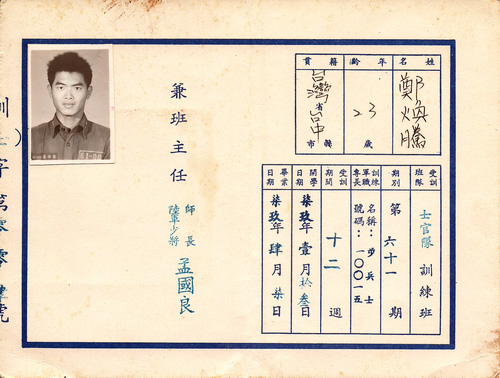 姓名
鄭煥騰
年齡
23歲
籍貫
台灣省台中縣市
受訓班隊
士官隊 訓練班
期別
第六十一期
訓練軍職專長
名稱:步兵士
號碼:一〇〇一5
受訓期間
十二週
開學日期
柒玖年壹月拾叁日
畢業日期
柒玖年肆月柒日
兼班主任
師長
陸軍少將
孟國良
訓
字第零零肆號